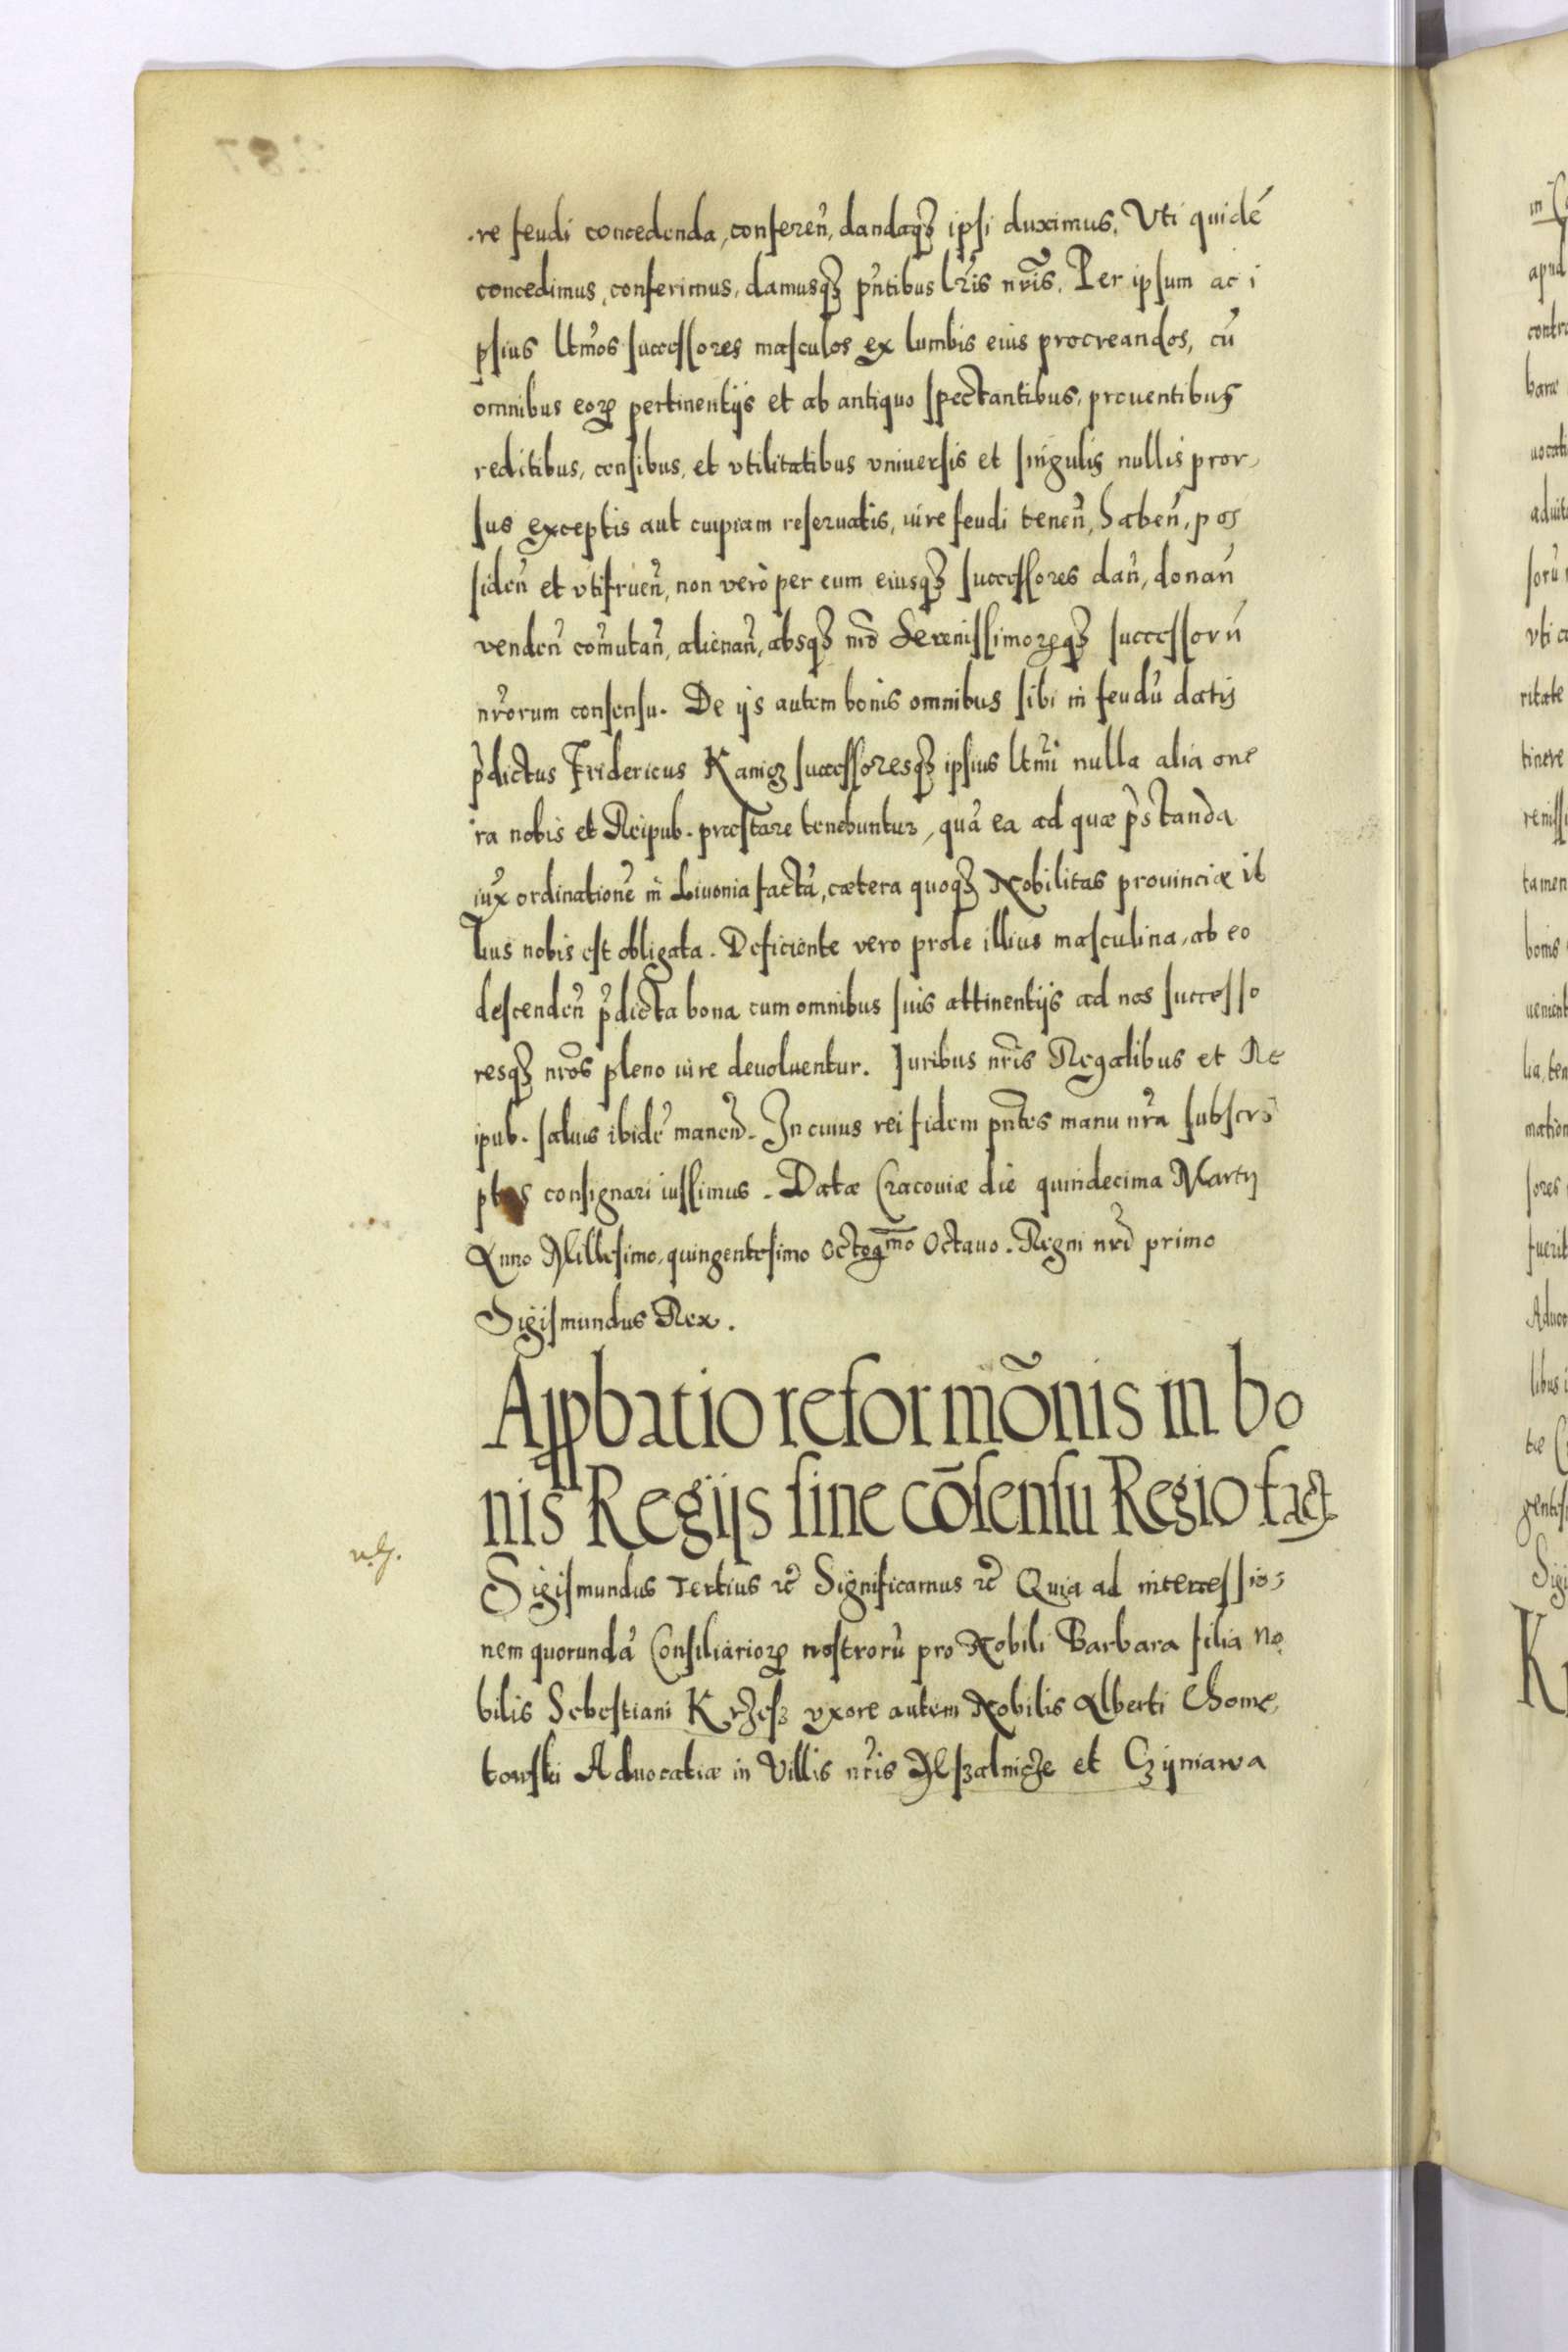 re feudi concedenda, conferen̄, dandaqꝫ ipsi duximus. Vti quidē
concedimus, conferimus, damusqꝫ pn̄tibus lr̄is nr̄is. Per ipsum ac i
psius ltm̄os successores masculos ex lumbis eius procreandos, cū
omnibus eoꝝ pertinentijs et ab antiquo spectantibus, prouentibus
reditibus, censibus, et vtilitatibus vniuersis et singulis nullis pror,
sus exceptis aut cuipiam reseruatis, iure feudi tenen̄, haben̄, pos
siden̄ et vtifruen̄, non verò per eum eiusqꝫ successores dan̄, donan̄
venden̄ com̄utan̄, alienan̄, absqꝫ nr̄o Serenissimoꝝqꝫ successorū
nr̄orum consensu. De ijs autem bonis omnibus sibi in feudū datis
p̄dictus Fridericus Kanicz successoresqꝫ ipsius ltm̄i nulla alia one
ra nobis et Reipub. præstare tenebuntur, quā ea ad quæ p̄standa
iux̄ ordinationē in Liuonia factā, cætera quoqꝫ Nobilitas prouinciæ il
lius nobis est obligata. Deficiente vero prole illius masculina, ab eo
descenden̄ p̄dicta bona cum omnibus suis attinentijs ad nos successo
resqꝫ nr̄os pleno iure deuoluentur. Juribus nr̄is Regalibus et Re
ipub. saluis ibidē manen̄. In cuius rei fidem pn̄tes manu nr̄a subscri
ptas consignari iussimus. Datæ Cracouiæ die quindecima Martij
Anno Millesimo, quingentesimo Octogᵐᵒ Octauo. Regni nr̄i primo
Sigismundus Rex.
Aꝓpbatio reformōnis in bo
nis Regijs sine cōsensu Regio fact
Sigismundus Tertius ꝛc̄ Significamus ꝛc̄ Quia ad intercessio,
nem quorundā Consiliarioꝝ nostrorū pro Nobili Barbara filia No
bilis Sebestiani Krzesz vxore autem Nobilis Alberti Chome,
towski Aduocatiæ in Villis nr̄is Mszalnicze et Czyniawa